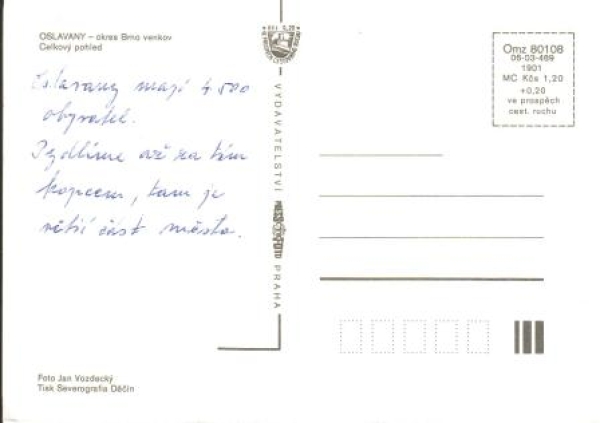 OSLAVANY – okres Brno venkov
Celkový pohled
Oslavany mají 4.500
obyvatel.
Bydlíme až za tím
kopcem, tam je
větší část města.
Foto Jan Vozdecký
Tisk Severografia Děčín
VYDAVATELSTVÍ
PRAHA
Omz 80108
05-03-469
1901
MC Kčs 1,20
+0,20
ve prospěch
cest. ruchu